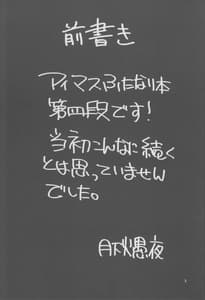 前書き
アイマスふたなり本
第四段です!
当初こんなに続く
とは思っていません
でした。